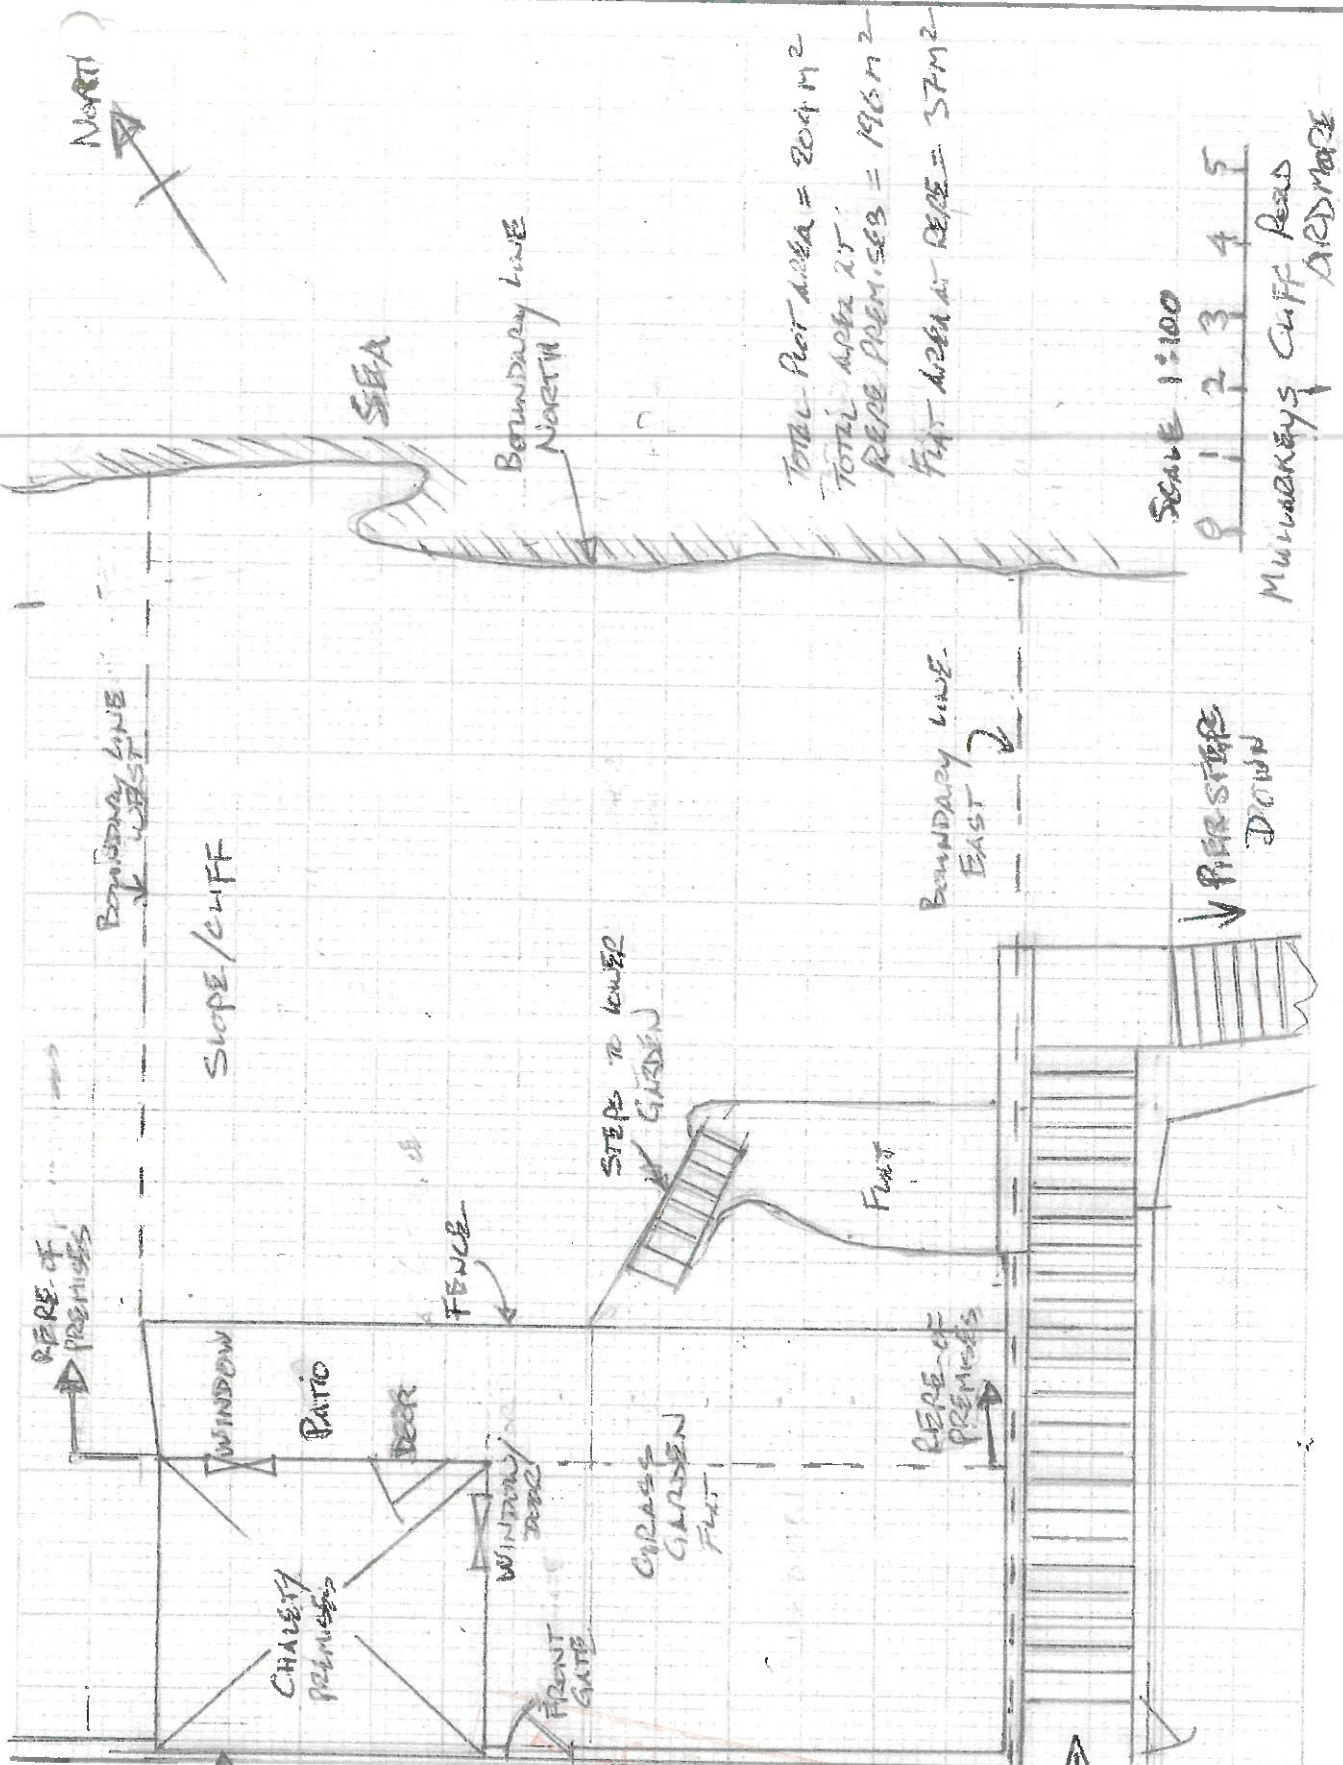 NORTH
SEA
BOUNDARY LINE
NORTH
TOTAL PLOT AREA = 204 M2
TOTAL AREA AT
RERE PREMISES = 196 M2
FLAT AREA AT RERE = 37M2
SCALE 1:100
0 1 2 3 4 5
MULVARKEYS CLIFF ROAD
ARDMORE
BOUNDARY LINE
WEST
SLOPE/CLIFF
BOUNDARY LINE
EAST
PIER STEPS
DOWN
STEPS TO LOWER
GARDEN
FLAT
RERE OF
PREMISES
FENCE
WINDOW
PATIO
DOOR
WINDOW/
DOOR
GRASS
GARDEN
FLAT
RERE OF
PREMISES
CHALET/
PREMISES
FRONT
GATE